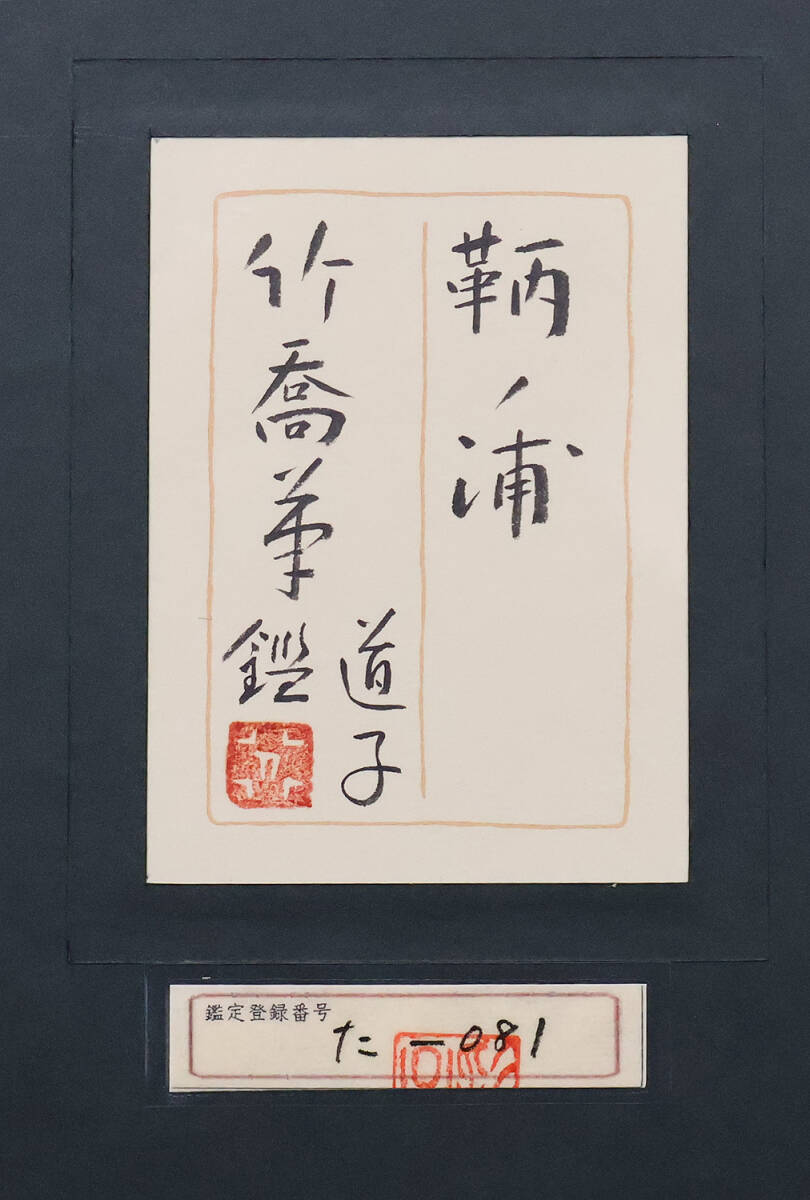 鞆ノ浦
竹喬筆
道子
鑑
鑑定登録番号
た-081